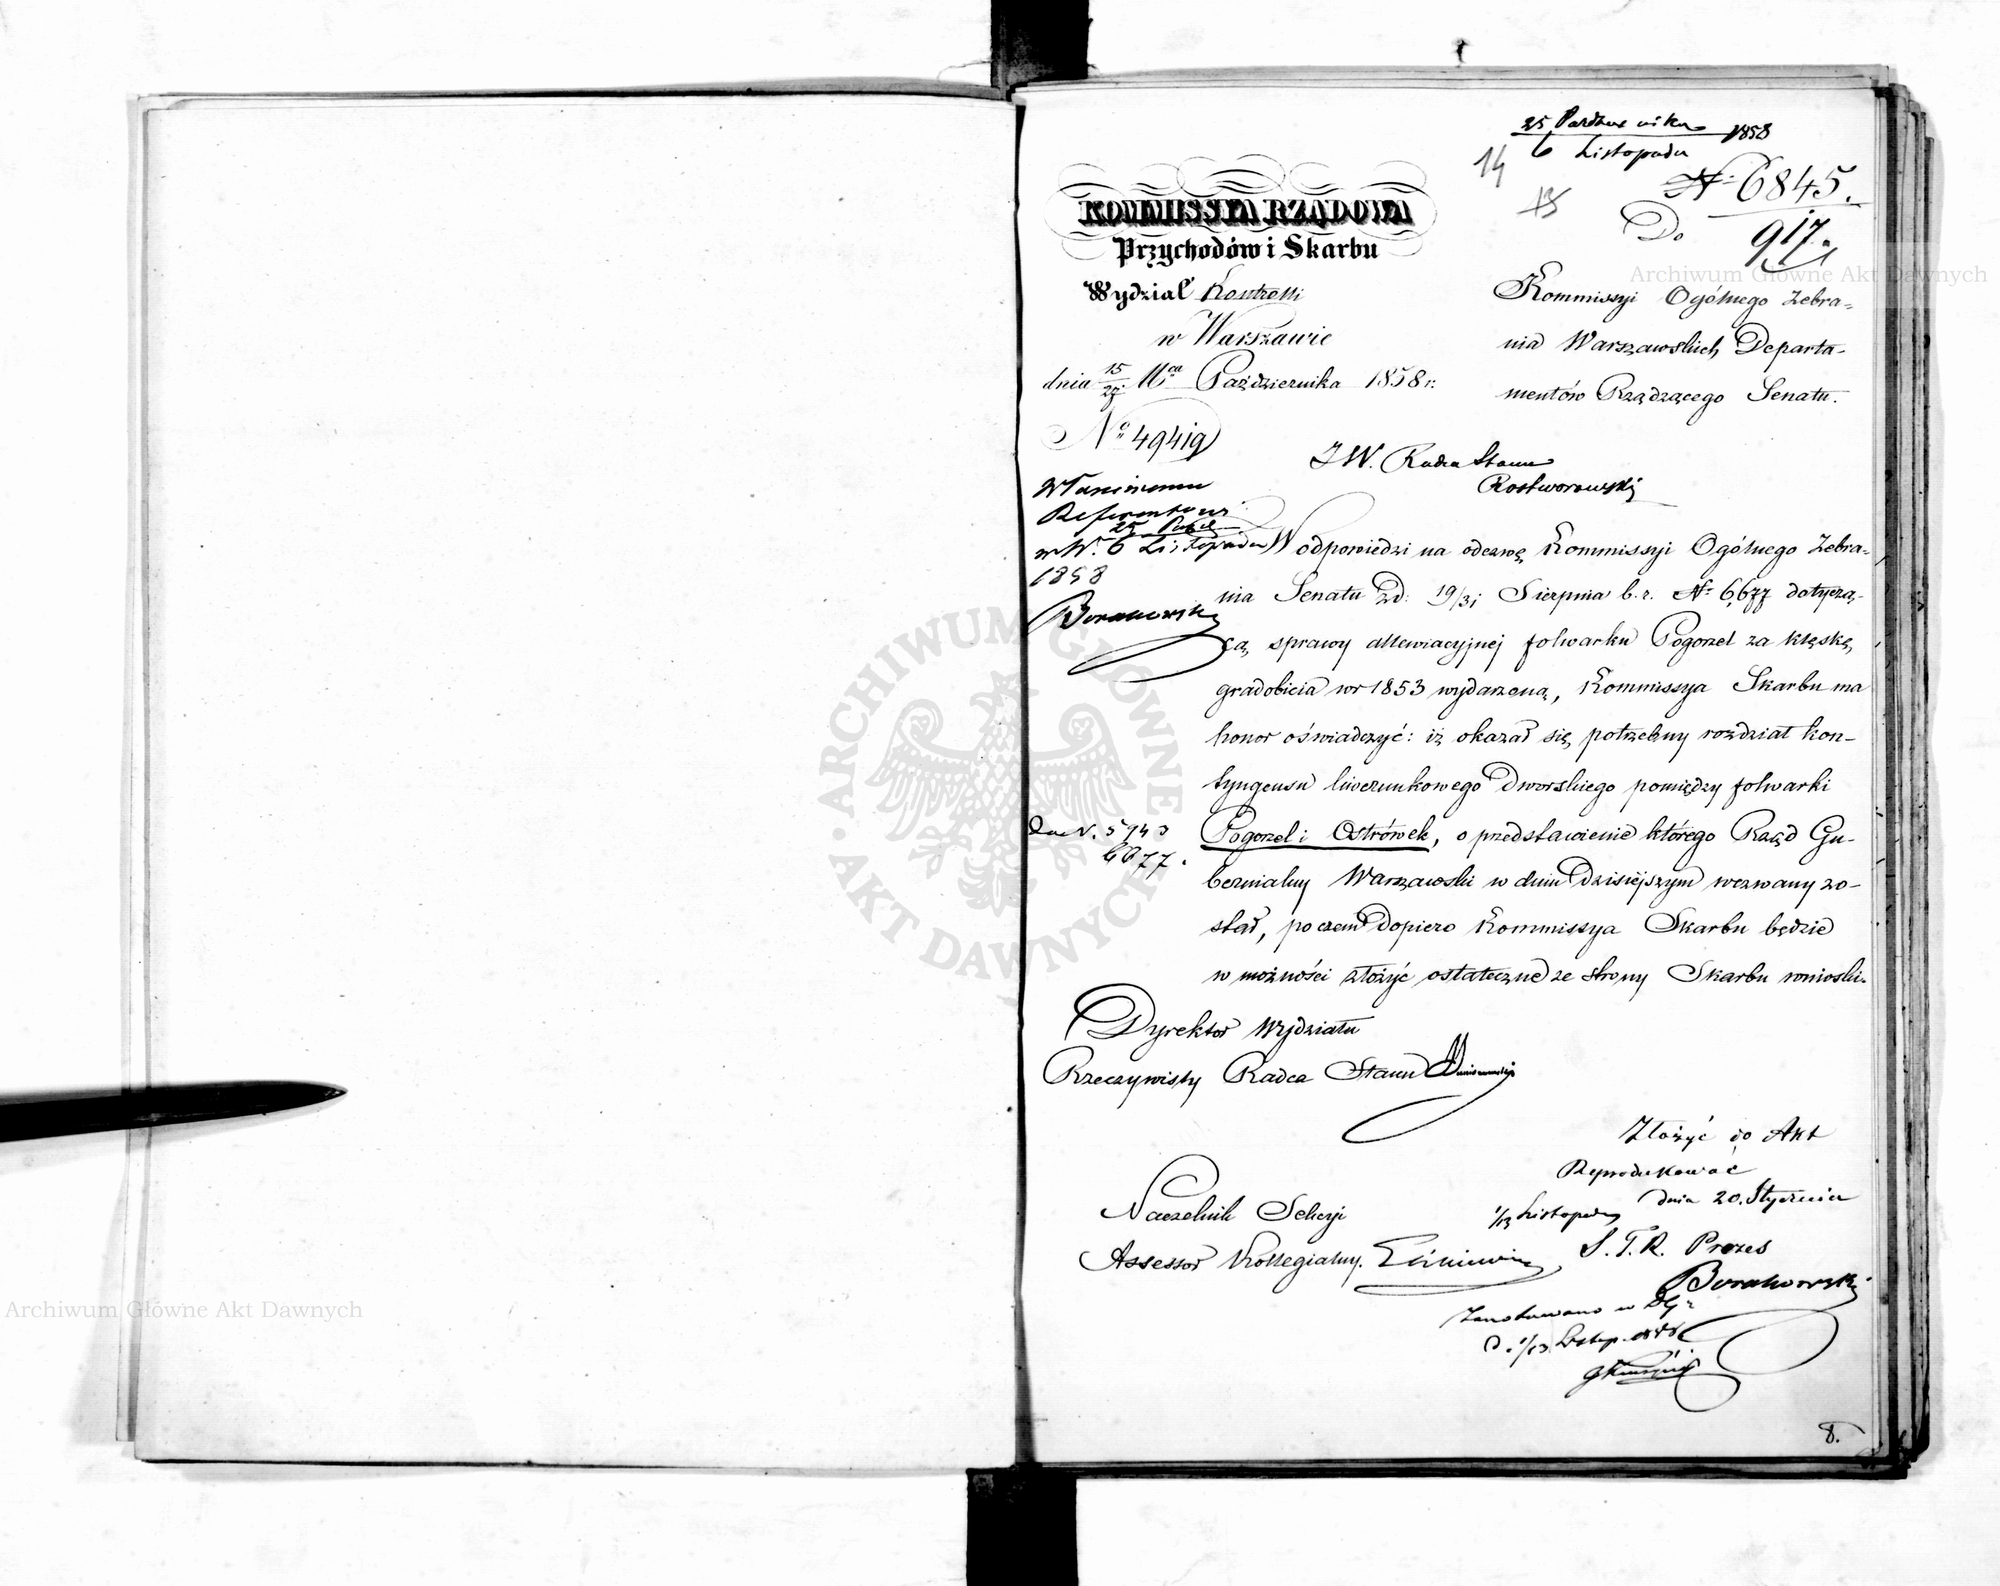 25 Października 1858
6 Listopada
14
15
Nº 6845.
Do 917.
KOMMISSYA RZĄDOWA
Przychodów i Skarbu
Wydział Kontrolli
w Warszawie
dnia 15/27 Mca Października 1858 r.
Nº 49419
Kommissyi Ogólnego Zebra-
nia Warszawskich Departa-
mentów Rządzącego Senatu.
JW. Radca Stanu
Rostworowski
Właściwemu
Referentowi
25 Paźd
w W. 6 Listopada
1858
W odpowiedzi na odezwę Kommissyi Ogólnego Zebra-
nia Senatu z d: 19/31 Sierpnia b. r. Nº 6,677 dotyczą-
cą, sprawy allewiacyjnej folwarku Pogorzel za klęskę
gradobicia w r 1853 wydarzoną, Kommissya Skarbu ma
honor oświadczyć: iż okazał się potrzebny rozdział kon-
tyngensu liwerunkowego Dworskiego pomiędzy folwarki
Pogorzel i Ostrówek, o przedstawienie którego Rząd Gu-
bernialny Warszawski w dniu dzisiejszym wezwany zo-
stał, poczem dopiero Kommissya Skarbu będzie
w możności złożyć ostateczne ze strony Skarbu wnioski.
6677.
Dyrektor Wydziału
Rzeczywisty Radca Stanu
Złożyć do Akt
Reprodukować
dnia 20. Stycznia
1/13 Listopada
Naczelnik Sekcyi
Assessor Kollegialny.
S. T. R. Prezes
Zanotowano w
d. 1/13 Listop. 1858
8.
Archiwum Główne Akt Dawnych
Archiwum Główne Akt Dawnych
ARCHIWUM GŁÓWNE AKT DAWNYCH